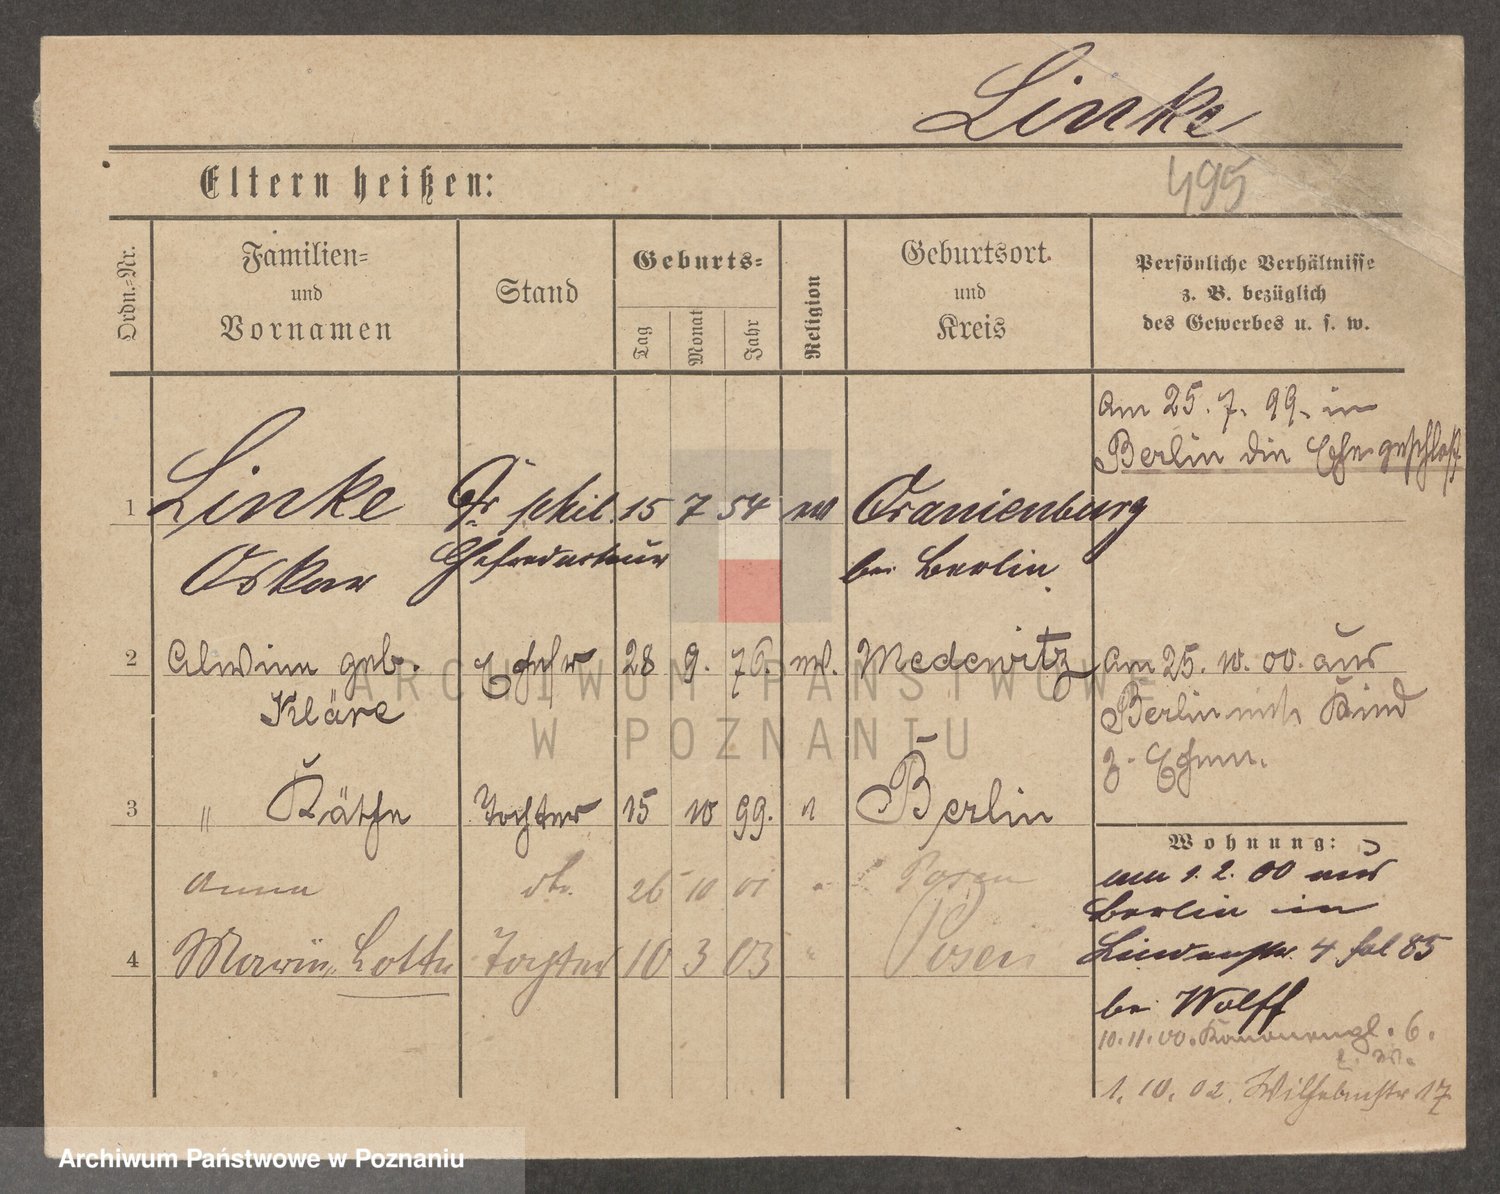 Linke
495
Eltern heißen:
Ordn.-Nr.
Familien=
und
Vornamen
Stand
Geburts=
Tag
Monat
Jahr
Religion
Geburtsort
und
Kreis
Persönliche Verhältnisse
z. B. bezüglich
des Gewerbes u. s. w.
am 25. 7. 99. in
Berlin die Ehe geschloß
1 Linke Dr phil. 15 7 54 ev Oranienburg
Oskar Chefredacteur bei Berlin
2 Alwine geb. Ehefr 28 9. 76. ev. Medewitz am 25. 10. 00. aus
Kläre Berlin mit Kind
z. Ehem.
3 " Käthe Tochter 15 10 99. " Berlin
Wohnung:
am 1. 2. 00 aus
Anna do. 26 10 01 " Posen
Berlin in
4 Marie Lotte Tochter 10 3 03 " Posen
Lindenstr. 4 bei Wolff
10. 11. 00. Kanonenpl. 6.
1. 10. 02. Wilhelmstr 17
ARCHIWUM PAŃSTWOWE
W POZNANIU
Archiwum Państwowe w Poznaniu